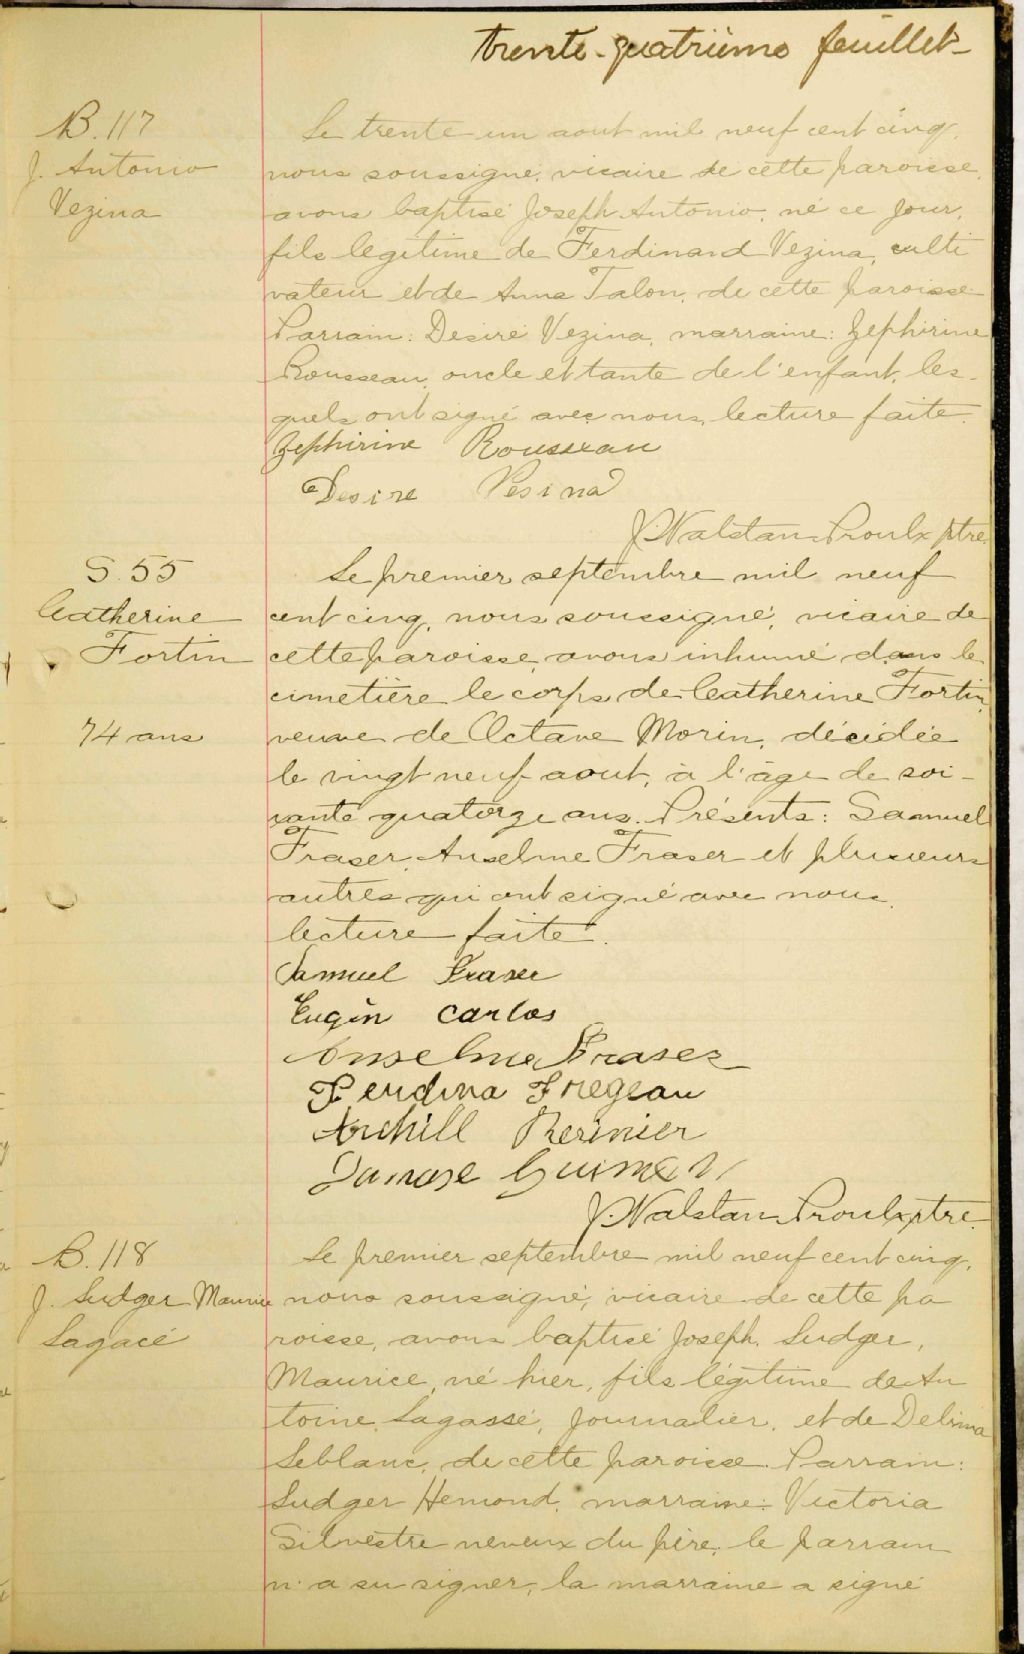 trente-quatrième feuillet
B. 117
J. Antonio
Vezina
Le trente un aout mil neuf cent cinq,
nous soussigné, vicaire de cette paroisse,
avons baptisé Joseph Antonio, né ce jour,
fils legitime de Ferdinand Vezina, culti
vateur et de Anna Talon, de cette paroisse
Parrain: Desiré Vezina, marraine: Zephirine
Rousseau, oncle et tante de l'enfant, les-
quels ont signé avec nous, lecture faite.
Zephirine Rousseau
Desire Vesina
J. Walstan Proulx ptre.
S. 55
Catherine
Fortin
74 ans
Le premier septembre mil neuf
cent cinq, nous soussigné, vicaire de
cette paroisse, avons inhumé dans le
cimetière le corps de Catherine Fortin,
veuve de Octave Morin, décédée
le vingt neuf aout, à l'âge de soi-
xante quatorze ans. Présents: Samuel
Fraser, Anselme Fraser et plusieurs
autres qui ont signé avec nous,
lecture faite.
Samuel Fraser
Eugèn Carlos
Anselme Fraser
Ferdina Fregeau
Archill
Damase
J. Walstan Proulx ptre.
B. 118
J. Ludger Maurice
Lagacé
Le premier septembre mil neuf cent cinq,
nous soussigné, vicaire de cette pa
roisse, avons baptisé Joseph, Ludger,
Maurice, né hier, fils légitime de An
toine Lagassé, journalier, et de Delima
Leblanc, de cette paroisse. Parrain:
Ludger Hemond, marraine: Victoria
Silvestre neveux du père, le parrain
n'a su signer, la marraine a signé